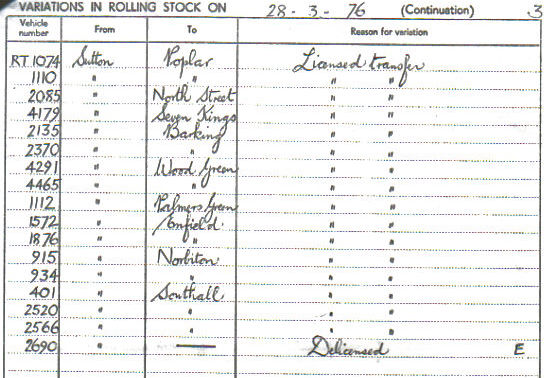 VARIATIONS IN ROLLING STOCK ON 28-3-76 (Continuation) 3
Vehicle number From To Reason for variation
RT 1074 Sutton Poplar Licensed transfer
1110 " " " "
2085 " North Street " "
4179 " Seven Kings " "
2135 " Barking " "
2370 " " " "
4291 " Wood Green " "
4465 " " " "
1112 " Palmers Green " "
1572 " Enfield " "
1876 " " " "
915 " Norbiton " "
934 " " " "
401 " Southall " "
2520 " " " "
2566 " " " "
2690 " — Delicensed E